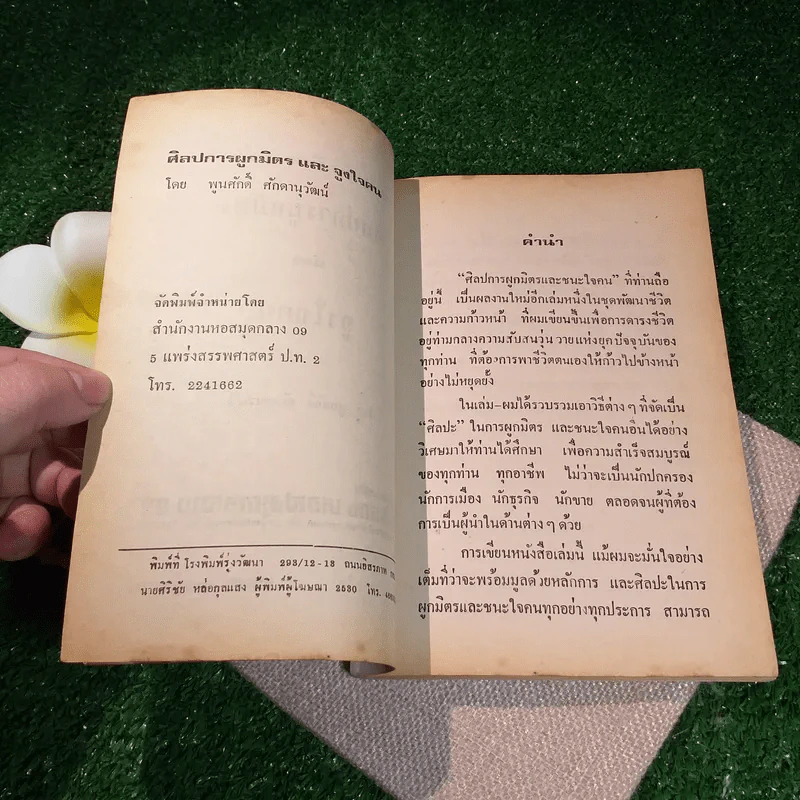 ศิลปการผูกมิตร และ จูงใจคน
โดย พูนศักดิ์ ศักดานุวัฒน์
จัดพิมพ์จำหน่ายโดย
สำนักงานหอสมุดกลาง 09
5 แพร่งสรรพศาสตร์ ป.ท. 2
โทร. 2241662
พิมพ์ที่ โรงพิมพ์รุ่งวัฒนา 293/12-13 ถนนอิสรภาพ
นายศิริชัย หล่อกุลแสง ผู้พิมพ์ผู้โฆษณา 2530 โทร.
คำนำ
“ศิลปการผูกมิตรและชนะใจคน” ที่ท่านถือ
อยู่นี้ เป็นผลงานใหม่อีกเล่มหนึ่งในชุดพัฒนาชีวิต
และความก้าวหน้า ที่ผมเขียนขึ้นเพื่อการดำรงชีวิต
อยู่ท่ามกลางความสับสนวุ่นวายแห่งยุคปัจจุบันของ
ทุกท่าน ที่ต้องการพาชีวิตตนเองให้ก้าวไปข้างหน้า
อย่างไม่หยุดยั้ง
ในเล่ม-ผมได้รวบรวมเอาวิธีต่าง ๆ ที่จัดเป็น
“ศิลปะ” ในการผูกมิตร และชนะใจคนอื่นได้อย่าง
วิเศษมาให้ท่านได้ศึกษา เพื่อความสำเร็จสมบูรณ์
ของทุกท่าน ทุกอาชีพ ไม่ว่าจะเป็นนักปกครอง
นักการเมือง นักธุรกิจ นักขาย ตลอดจนผู้ที่ต้อง
การเป็นผู้นำในด้านต่าง ๆ ด้วย
การเขียนหนังสือเล่มนี้ แม้ผมจะมั่นใจอย่าง
เต็มที่ว่าจะพร้อมมูลด้วยหลักการ และศิลปะในการ
ผูกมิตรและชนะใจคนทุกอย่างทุกประการ สามารถ